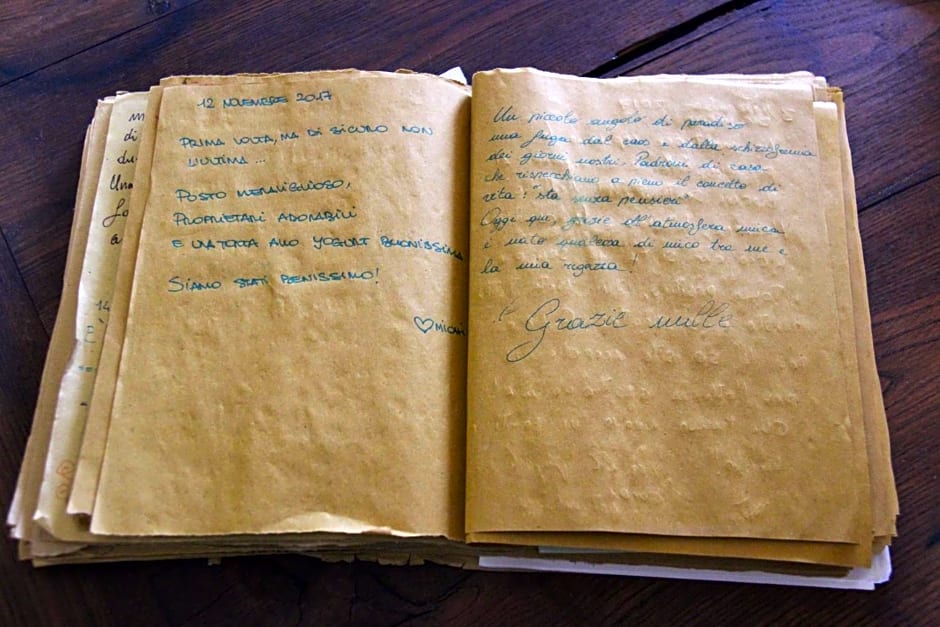 m
di
du
Una
Lo
a
14
E
12 NOVEMBRE 2017
PRIMA VOLTA, MA DI SICURO NON
L'ULTIMA ...
POSTO MERAVIGLIOSO,
PROPRIETARI ADORABILI
E UNA TORTA ALLO YOGURT BUONISSIMA
SIAMO STATI BENISSIMO!
♡MICAH
Un piccolo angolo di paradiso
una fuga dal caos e dalla schizofrenia
dei giorni nostri. Padroni di casa
che rispecchiano a pieno il concetto di
vita: "sta senza pensieri"
Oggi qui, grazie all'atmosfera unica
è nato qualcosa di unico tra me e
la mia ragazza!
Grazie mille